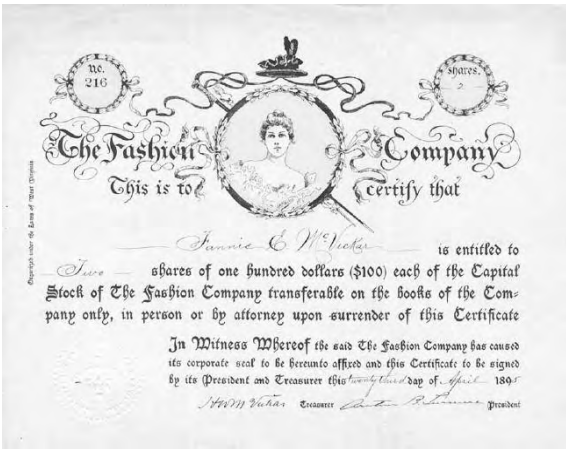 no.
216
shares.
2
The Fashion Company
This is to certify that
Organized under the Laws of West Virginia
Fannie E McVickar is entitled to
Two shares of one hundred dollars ($100) each of the Capital
Stock of The Fashion Company transferable on the books of the Com-
pany only, in person or by attorney upon surrender of this Certificate
In Witness Whereof the said The Fashion Company has caused
its corporate seal to be hereunto affixed and this Certificate to be signed
by its President and Treasurer this twenty third day of April 1895
McVickar Treasurer President